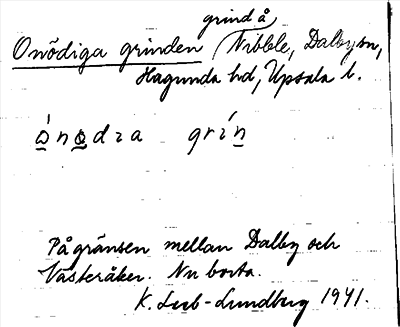 grind å
Onödiga grinden Nibble, Dalby sn,
Hagunda hd, Upsala l.
ȯnødıa grín
På gränsen mellan Dalby och
Västeråker. Nu borta.
K. Leeb-Lundberg 1941.